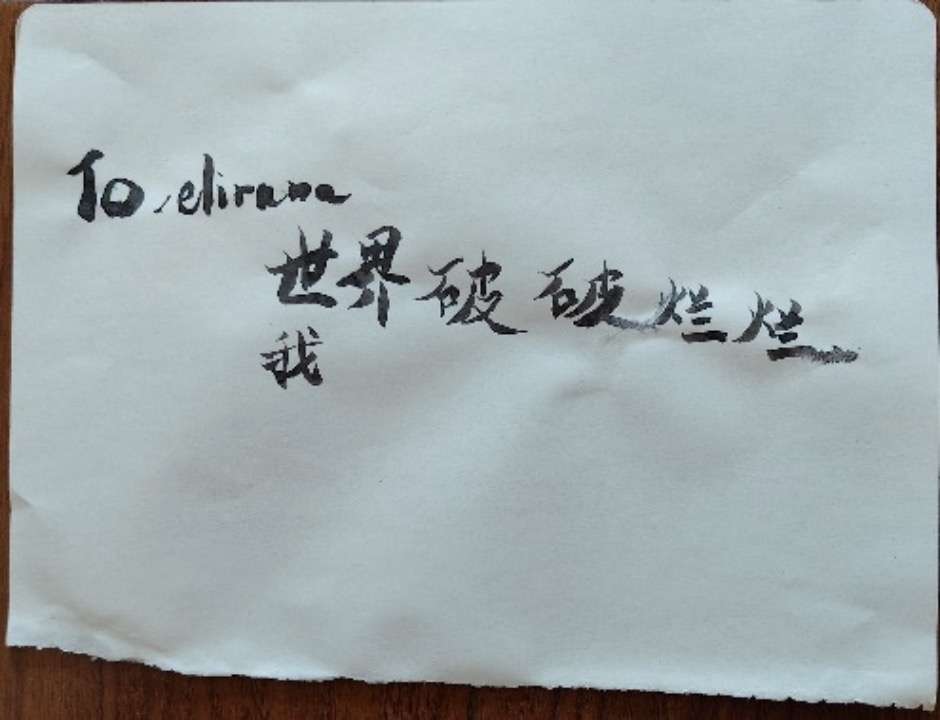 To elirana
世界破破烂烂
我